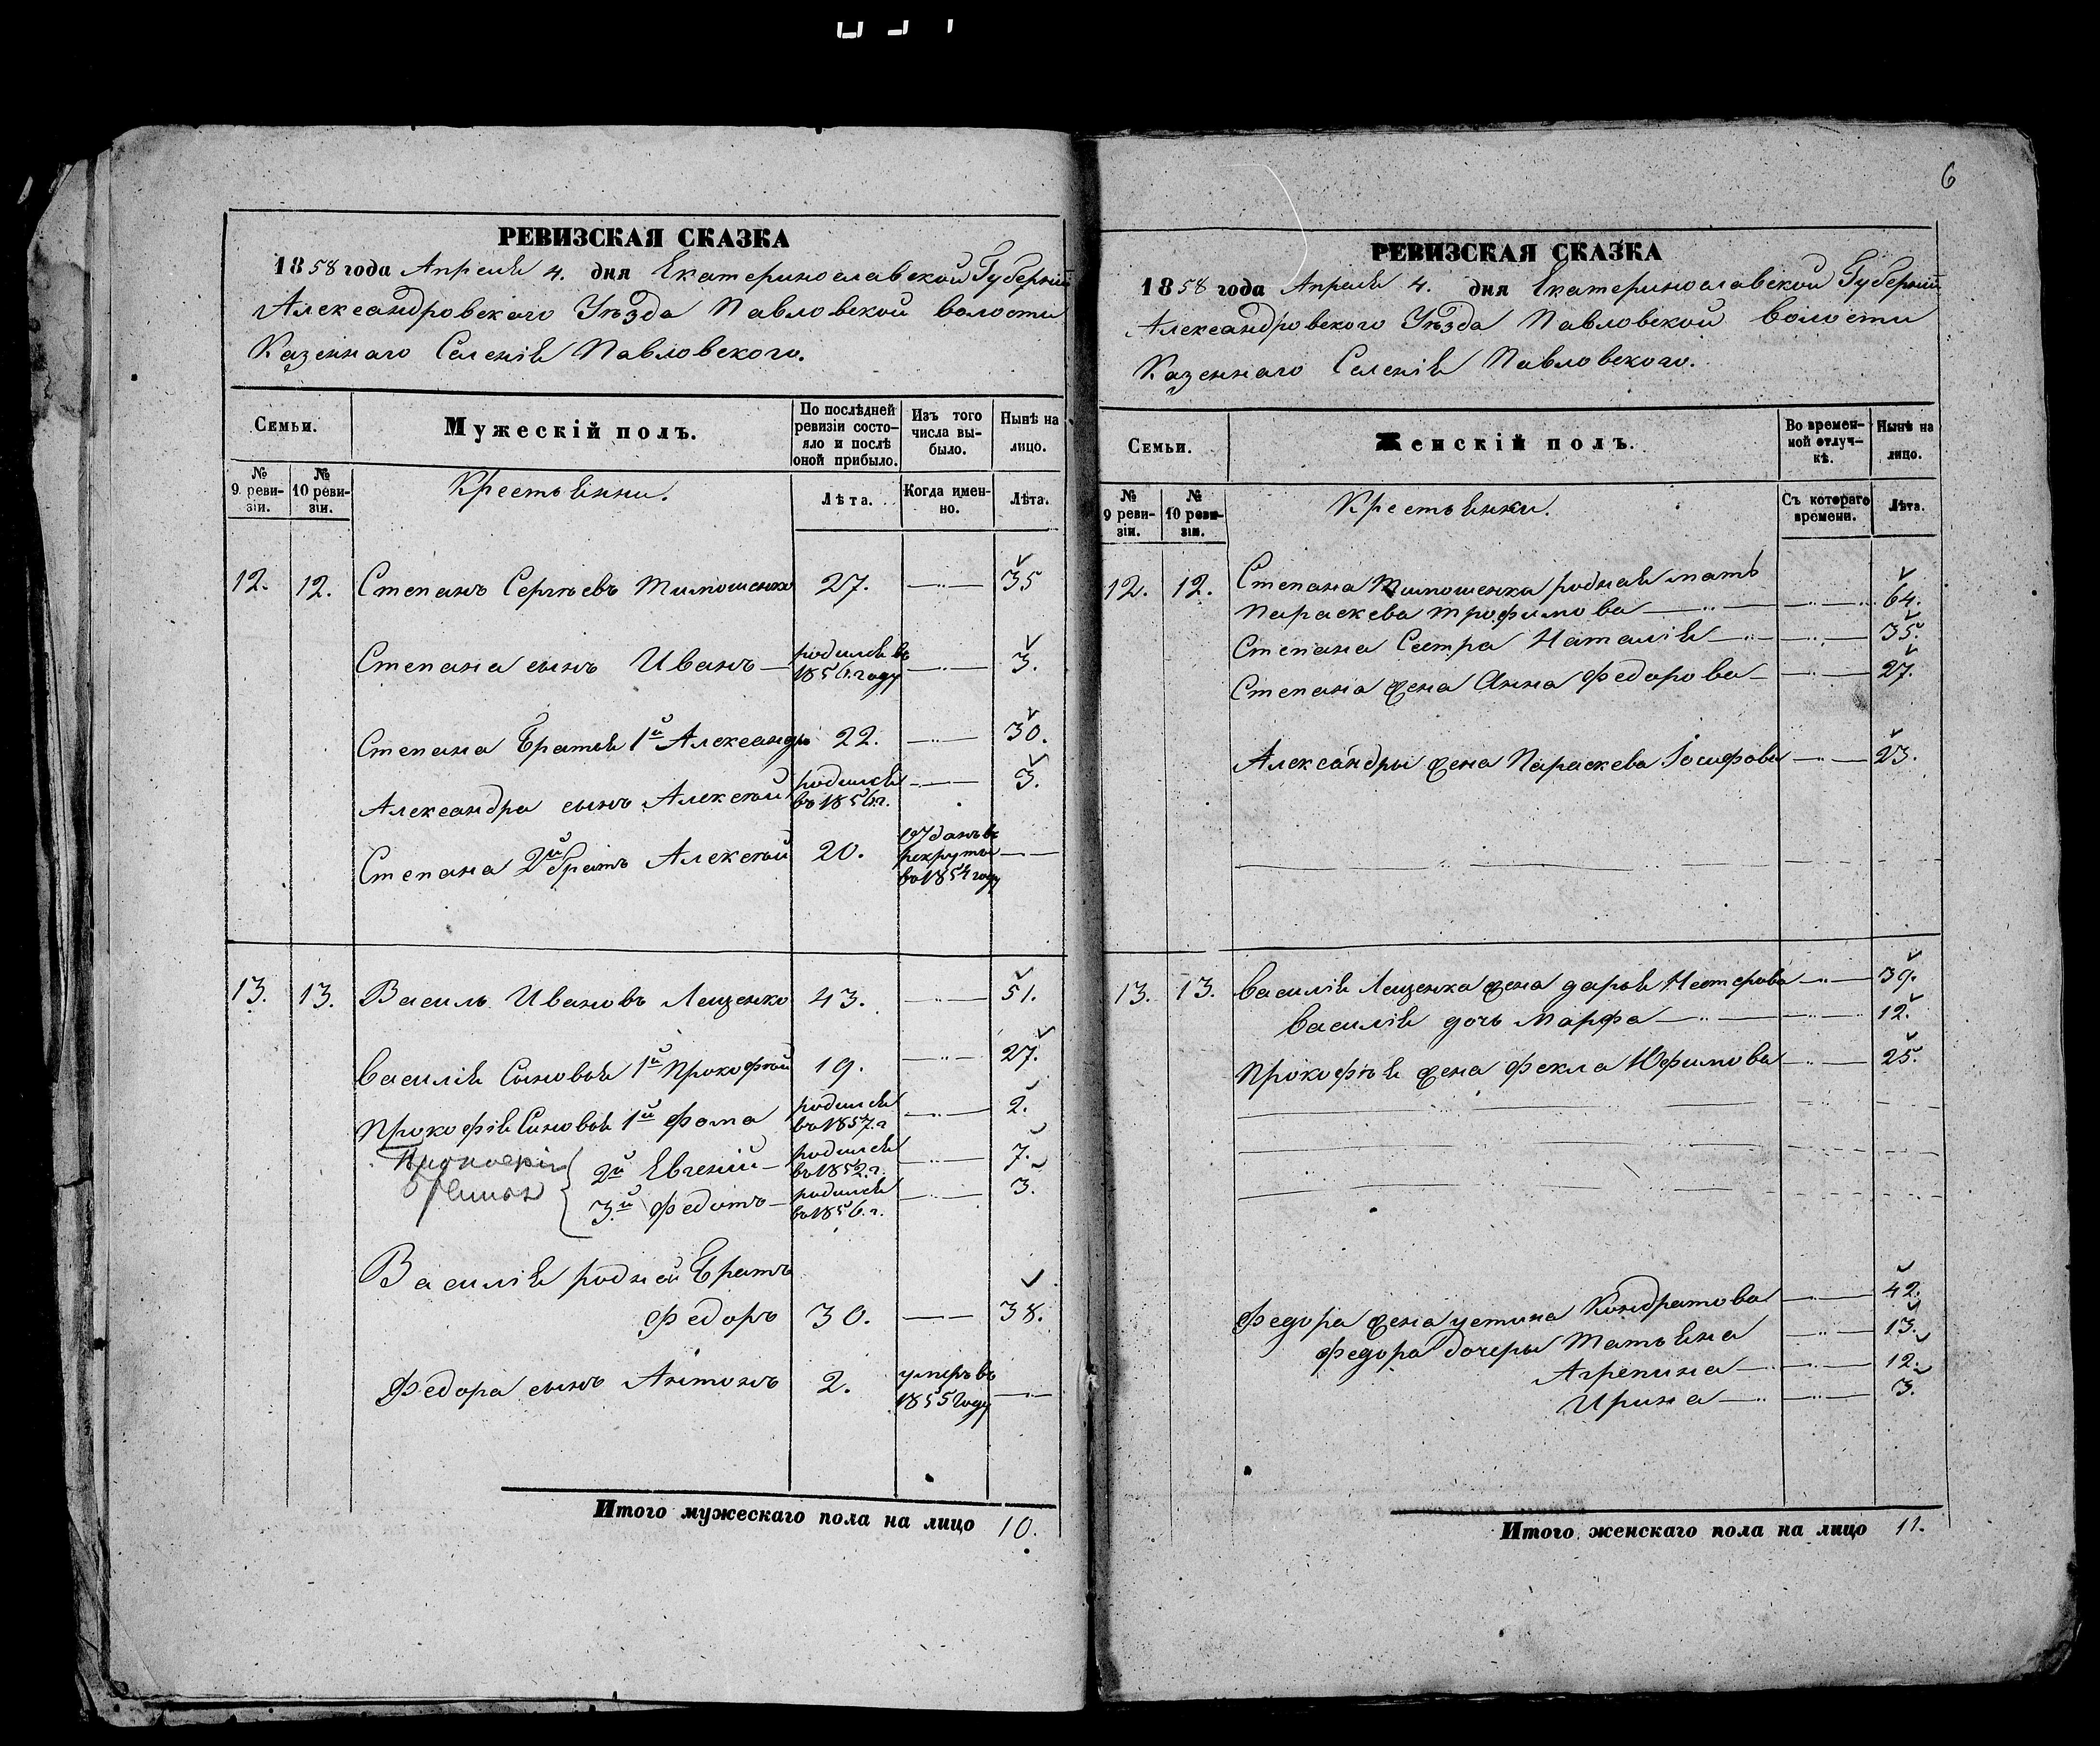 РЕВИЗСКАЯ СКАЗКА
1858 года Апреля 4. дня Екатеринославской Губерніи
Александровскаго Уѣзда Павловской волости
Казеннаго Селенія Павловского.
Семьи.
Мужескій полъ.
По послѣдней ревизіи состо-
яло и послѣ оной прибыло.
Изъ того числа вы-
было.
Нынѣ на лицо.
№ 9 реви-
зіи.
№ 10 реви-
зіи.
Крестьянни.
Лѣта.
Когда имен-
но.
Лѣта.
12. 12. Степанъ Сергѣевъ Тимошенко 27. 35
Степана сынъ Иванъ родился въ 1856. году 3.
Степана Братья 1й Александръ 22. 30.
Александра сынъ Алексѣй родился въ 1856 г. 3.
Степана 2й братъ Алексѣй 20. отданъ въ рекруты въ 1854 году
13. 13. Василь Ивановъ Лященко 43. 51.
Василія Сыновья 1й Прокофѣй 19. 27.
Прокофія Сыновья 1й Фома родился въ 1857. г 2.
2й Евгеній родился въ 1852. г. 7.
3.й Федотъ родился въ 1856. г. 3.
Василія родной Братъ
Федоръ 30. 38.
Федора сынъ Антонъ 2. умеръ въ 1855 году
Итого мужескаго пола на лицо 10.
6
РЕВИЗСКАЯ СКАЗКА
1858 года Апреля 4. дня Екатеринославской Губерніи
Александровского Уѣзда Павловской волости
Казеннаго Селенія Павловского.
Семьи.
Женскій полъ.
Во времен-
ной отлуч-
кѣ.
Нынѣ на лицо.
№ 9 реви-
зіи.
№ 10 реви-
зіи.
Крестьянки.
Съ котораго времени.
Лѣта.
12. 12. Степана Тимошенка родная мать
Параскева Трофимова 64.
Степана Сестра Наталія 35.
Степана жена Анна Федорова 27.
Александры жена Параскева Іосифова 23.
13. 13. Василія Лященка жена Дарья Нестерова 39.
Василія дочь Марфа 12.
Прокофѣя жена Фекла Юфимова 25.
Федора жена Устина Кондратова 42.
Федора дочеры Татьяна 13.
Агрепина 12.
Ирина 3.
Итого женскаго пола на лицо 11.